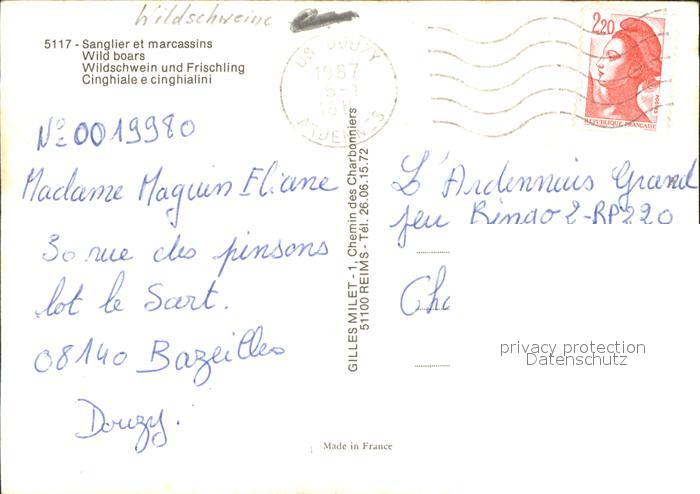 Wildschweine
5117 - Sanglier et marcassins
Wild boars
Wildschwein und Frischling
Cinghiale e cinghialini
08 DOUZY
1987
ARDENNES
2,20
REPUBLIQUE FRANÇAISE
N° 0019980
Madame Maguin Eliane
30 rue des pinsons
lot le Sart.
08140 Bazeilles
Douzy.
GILLES MILET - 1, Chemin des Charbonniers
51100 REIMS - Tél. 26.06.15.72
L'Ardennais Grand
jeu Rindo 2-RP220
Cha
privacy protection
Datenschutz
Made in France